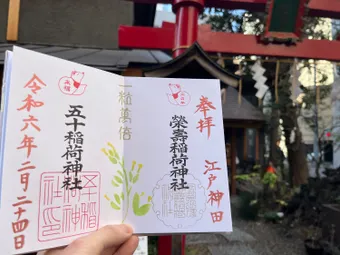 奉拝
江戸神田
榮壽稲荷神社
一稲萬倍
五十稲荷神社
令和六年二月二十四日